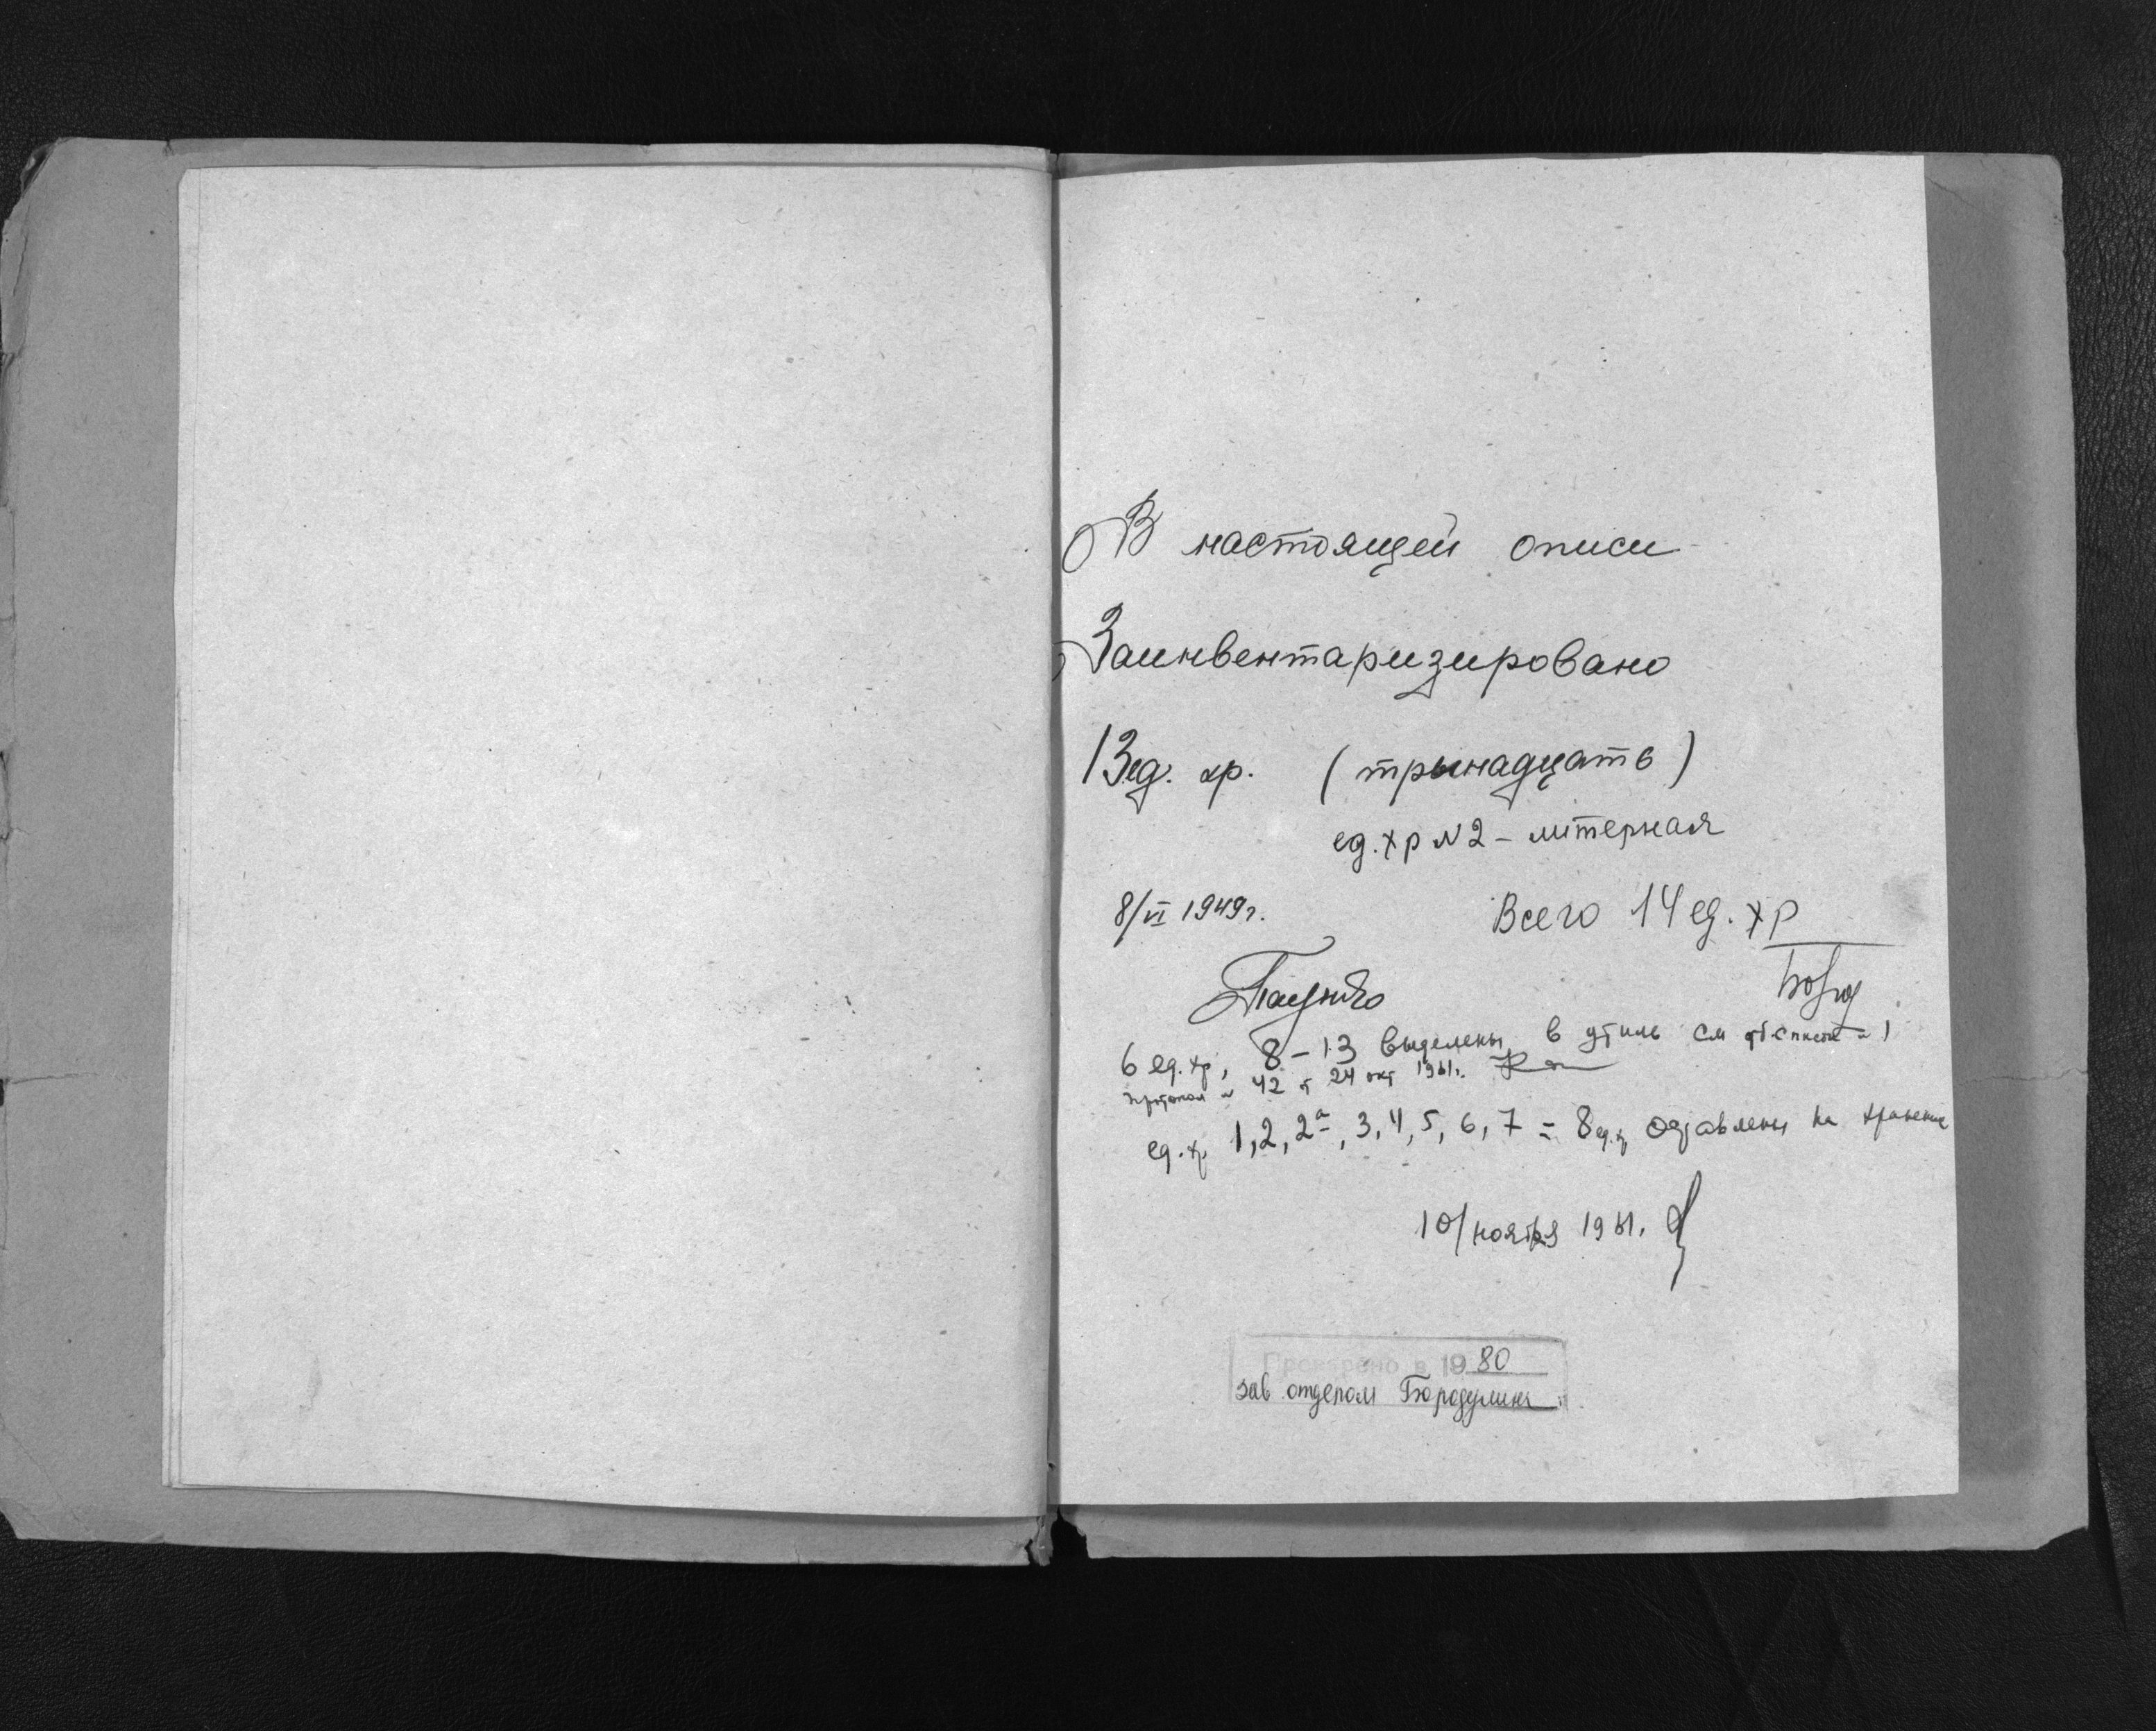 В настоящей описи
Заинвентаризировано
13 ед. хр. (трынадцать)
ед. хр №2 – литерная
8/VI 1949 г.
Всего 14 ед. хр
6 ед. хр, 8–13 выделены в утиль см
протокол № 42 от 24 окт 1961 г.
ед. хр 1, 2, 2а, 3, 4, 5, 6, 7 = 8 ед. хр оставлены на хранение
10/ноября 1961.
Проверено в 1980
зав. отделом Бородулина